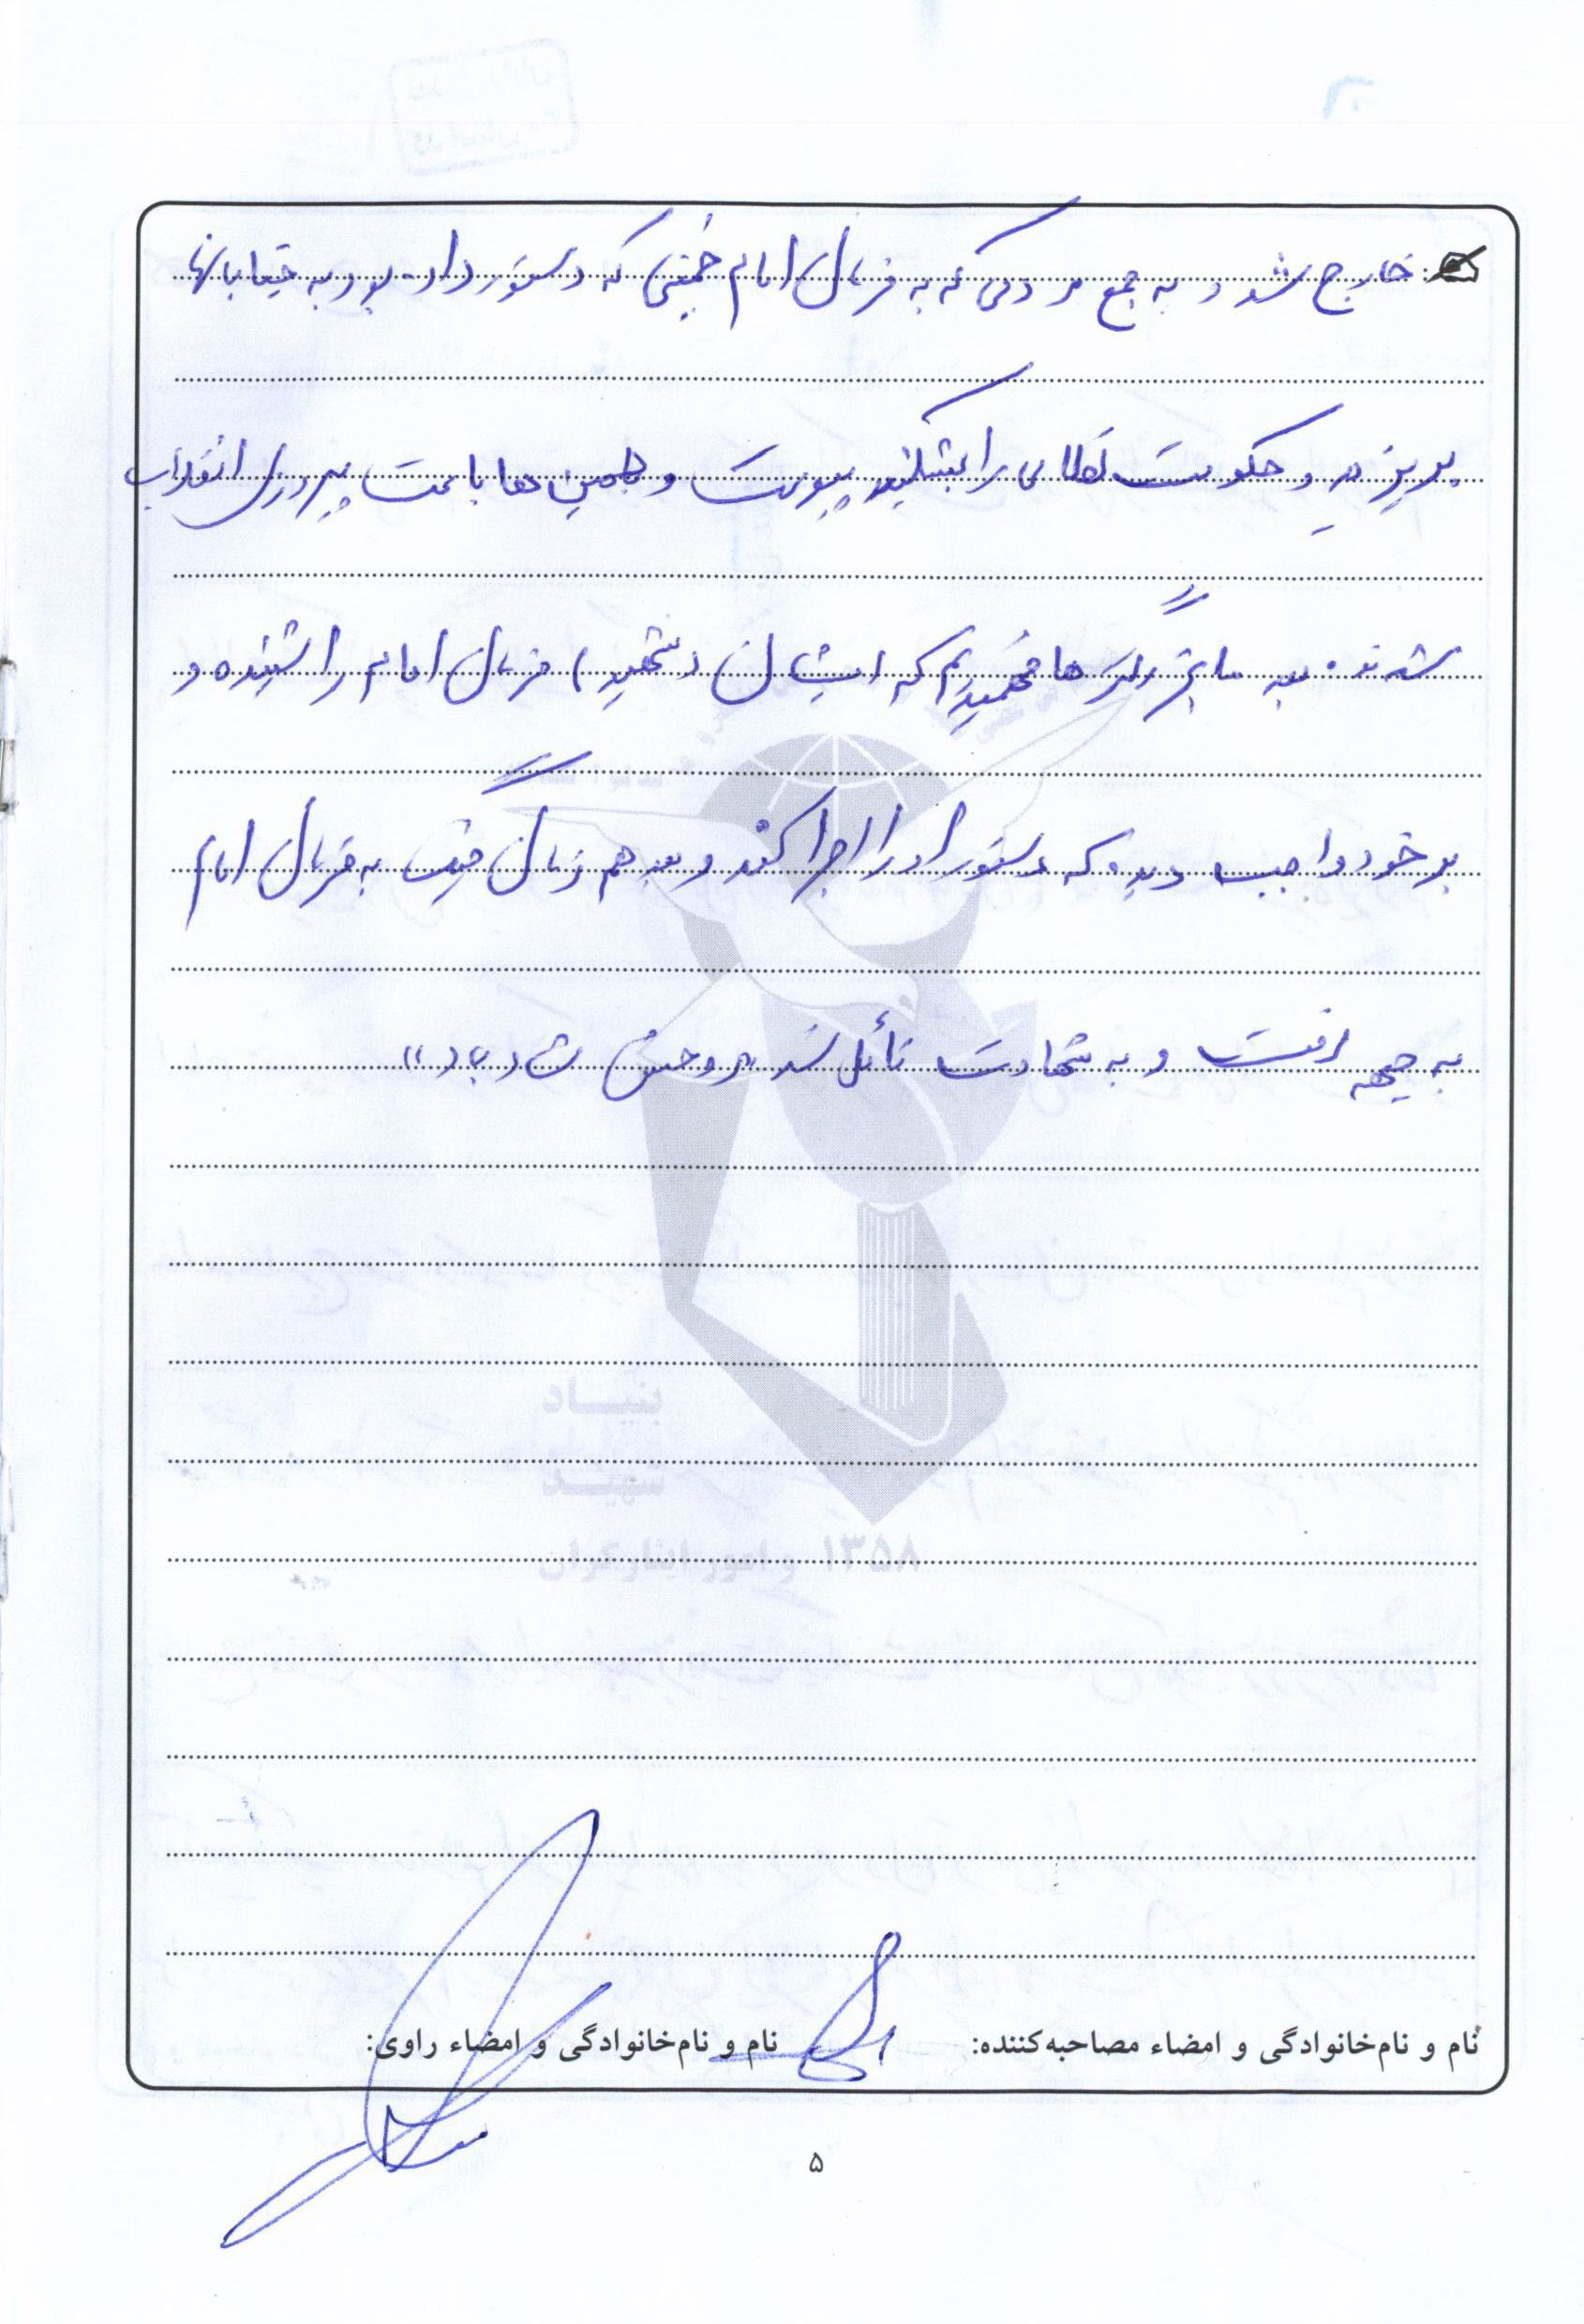 خارج شد و به جمع مردمی که به فرمان امام خمینی که دستور داده بود به خیابانها
بریزید و حکومت نظامی را بشکنید پیوست و همین ها باعث پیروزی انقلاب
شدند. بعد ما بزرگتر ها فهمیدیم که ایشان (شهید) فرمان امام را شنیده و
بر خود واجب دیده که دستور او را اجرا کند و بعد هم زمان جنگ به فرمان امام
به جبهه رفت و به شهادت نائل شد «روحش شاد باد»
بنیاد
شهید
۱۳۵۸ و امور ایثارگران
نام و نام‌خانوادگی و امضاء مصاحبه‌کننده: نام و نام‌خانوادگی و امضاء راوی:
۵